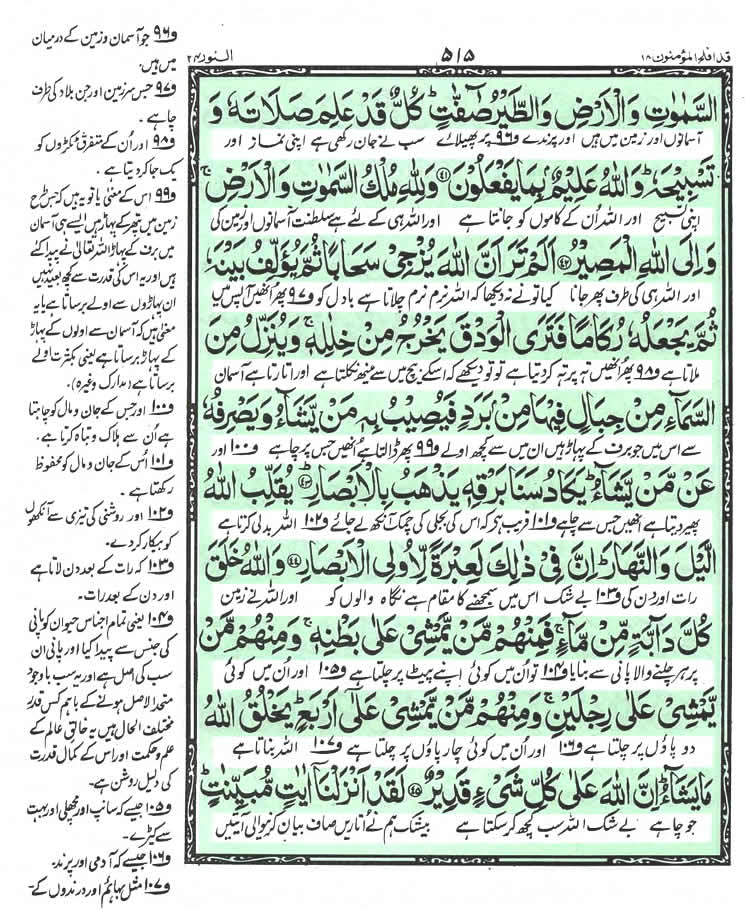 قد افلح المؤمنون ۱۸
۵۱۵
النور ۲۴
السَّمٰوٰتِ وَالْاَرْضِ وَالطَّيْرُ صٰٓفّٰتٍ ؕ كُلٌّ قَدْ عَلِمَ صَلَاتَهٗ وَ
آسمانوں اور زمین میں ہیں اور پرندے ف۹۶ پر پھیلائے سب نے جان رکھی ہے اپنی نماز اور
تَسْبِيْحَهٗ ؕ وَاللّٰهُ عَلِيْمٌۢ بِمَا يَفْعَلُوْنَ ﴿۴۱﴾ وَلِلّٰهِ مُلْكُ السَّمٰوٰتِ وَالْاَرْضِ ۚ
اپنی تسبیح اور اللہ اُن کے کاموں کو جانتا ہے اور اللہ ہی کے لئے ہے سلطنت آسمانوں اور زمین کی
وَاِلَى اللّٰهِ الْمَصِيْرُ ﴿۴۲﴾ اَلَمْ تَرَ اَنَّ اللّٰهَ يُزْجِيْ سَحَابًا ثُمَّ يُؤَلِّفُ بَيْنَهٗ
اور اللہ ہی کی طرف پھر جانا کیا تو نے نہ دیکھا کہ اللہ نرم نرم چلاتا ہے بادل کو ف۹۷ پھر اُنھیں آپس میں
ثُمَّ يَجْعَلُهٗ رُكَامًا فَتَرَى الْوَدْقَ يَخْرُجُ مِنْ خِلٰلِهٖ ۚ وَيُنَزِّلُ مِنَ
ملاتا ہے ف۹۸ پھر اُنھیں تہ پر تہ کر دیتا ہے تو تو دیکھے کہ اسکے بیچ میں سے مینھ نکلتا ہے اور اتارتا ہے آسمان
السَّمَآءِ مِنْ جِبَالٍ فِيْهَا مِنْۢ بَرَدٍ فَيُصِيْبُ بِهٖ مَنْ يَّشَآءُ وَيَصْرِفُهٗ
سے اس میں جو برف کے پہاڑ ہیں ان میں سے کچھ اولے ف۹۹ پھر ڈالتا ہے اُنھیں جس پر چاہے ف۱۰۰ اور
عَنْ مَّنْ يَّشَآءُ ؕ يَكَادُ سَنَا بَرْقِهٖ يَذْهَبُ بِالْاَبْصَارِ ﴿۴۳﴾ يُقَلِّبُ اللّٰهُ
پھیر دیتا ہے اُنھیں جس سے چاہے ف۱۰۱ قریب ہے کہ اس کی بجلی کی چمک آنکھ لے جائے ف۱۰۲ اللہ بدلی کرتا ہے
الَّيْلَ وَالنَّهَارَ ؕ اِنَّ فِيْ ذٰلِكَ لَعِبْرَةً لِّاُولِي الْاَبْصَارِ ﴿۴۴﴾ وَاللّٰهُ خَلَقَ
رات اور دن کی ف۱۰۳ بے شک اس میں سمجھنے کا مقام ہے نگاہ والوں کو اور اللہ نے زمین
كُلَّ دَآبَّةٍ مِّنْ مَّآءٍ ۚ فَمِنْهُمْ مَّنْ يَّمْشِيْ عَلٰى بَطْنِهٖ ۚ وَمِنْهُمْ مَّنْ
پر ہر چلنے والا پانی سے بنایا ف۱۰۴ تو اُن میں کوئی اپنے پیٹ پر چلتا ہے ف۱۰۵ اور اُن میں کوئی
يَّمْشِيْ عَلٰى رِجْلَيْنِ ۚ وَمِنْهُمْ مَّنْ يَّمْشِيْ عَلٰٓى اَرْبَعٍ ؕ يَخْلُقُ اللّٰهُ
دو پاؤں پر چلتا ہے ف۱۰۶ اور اُن میں کوئی چار پاؤں پر چلتا ہے ف۱۰۷ اللہ بناتا ہے
مَا يَشَآءُ ؕ اِنَّ اللّٰهَ عَلٰى كُلِّ شَيْءٍ قَدِيْرٌ ﴿۴۵﴾ لَقَدْ اَنْزَلْنَآ اٰيٰتٍ مُّبَيِّنٰتٍ ؕ
جو چاہے بے شک اللہ سب کچھ کر سکتا ہے بیشک ہم نے اتاریں صاف بیان کرنیوالی آیتیں
ف۹۶ جو آسمان و زمین کے درمیان
میں ہیں.
ف۹۷ جس سرزمین اور جن بلاد کی طرف
چاہے۔
ف۹۸ اور اُن کے متفرق ٹکڑوں کو
یک جا کر دیتا ہے۔
ف۹۹ اس کے معنی یا تو یہ ہیں کہ جس طرح
زمین میں پتھر کے پہاڑ ہیں ایسے ہی آسمان
میں برف کے پہاڑ اللہ تعالیٰ نے پیدا کئے
ہیں اور یہ اس کی قدرت سے کچھ بعید نہیں
ان پہاڑوں سے اولے برساتا ہے یا یہ
معنی ہیں کہ آسمان سے اولوں کے پہاڑ
کے پہاڑ برساتا ہے یعنی بکثرت اولے
برساتا ہے (مدارک وغیرہ).
ف۱۰۰ اور جس کے جان و مال کو چاہتا
ہے اُن سے ہلاک و تباہ کرتا ہے.
ف۱۰۱ اُس کے جان و مال کو محفوظ
رکھتا ہے۔
ف۱۰۲ اور روشنی کی تیزی سے آنکھوں
کو بیکار کر دے۔
ف۱۰۳ کہ رات کے بعد دن لاتا ہے
اور دن کے بعد رات۔
ف۱۰۴ یعنی تمام اجناس حیوان کو پانی
کی جنس سے پیدا کیا اور پانی ان
سب کی اصل ہے اور یہ سب باوجود
متحد الاصل ہونے کے باہم کس قدر
مختلف الحال ہیں یہ خالق عالم کے
علم و حکمت اور اس کے کمال قدرت
کی دلیل روشن ہے۔
ف۱۰۵ جیسے کہ سانپ اور مچھلی اور بہت
سے کیڑے۔
ف۱۰۶ جیسے کہ آدمی اور پرند۔
ف۱۰۷ مثل بہائم اور درندوں کے۔